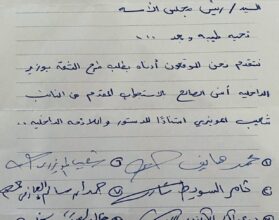 السيد / رئيس مجلس الأمة
تحية طيبة وبعد ...
نتقدم نحن الموقعون أدناه بطلب طرح الثقة بوزير
الداخلية أنس الصالح الاستجواب المقدم من النائب
شعيب المويزري استنادا للدستور واللائحة الداخلية ..
محمد هايف
شعيب المويزري
ثامر السويط